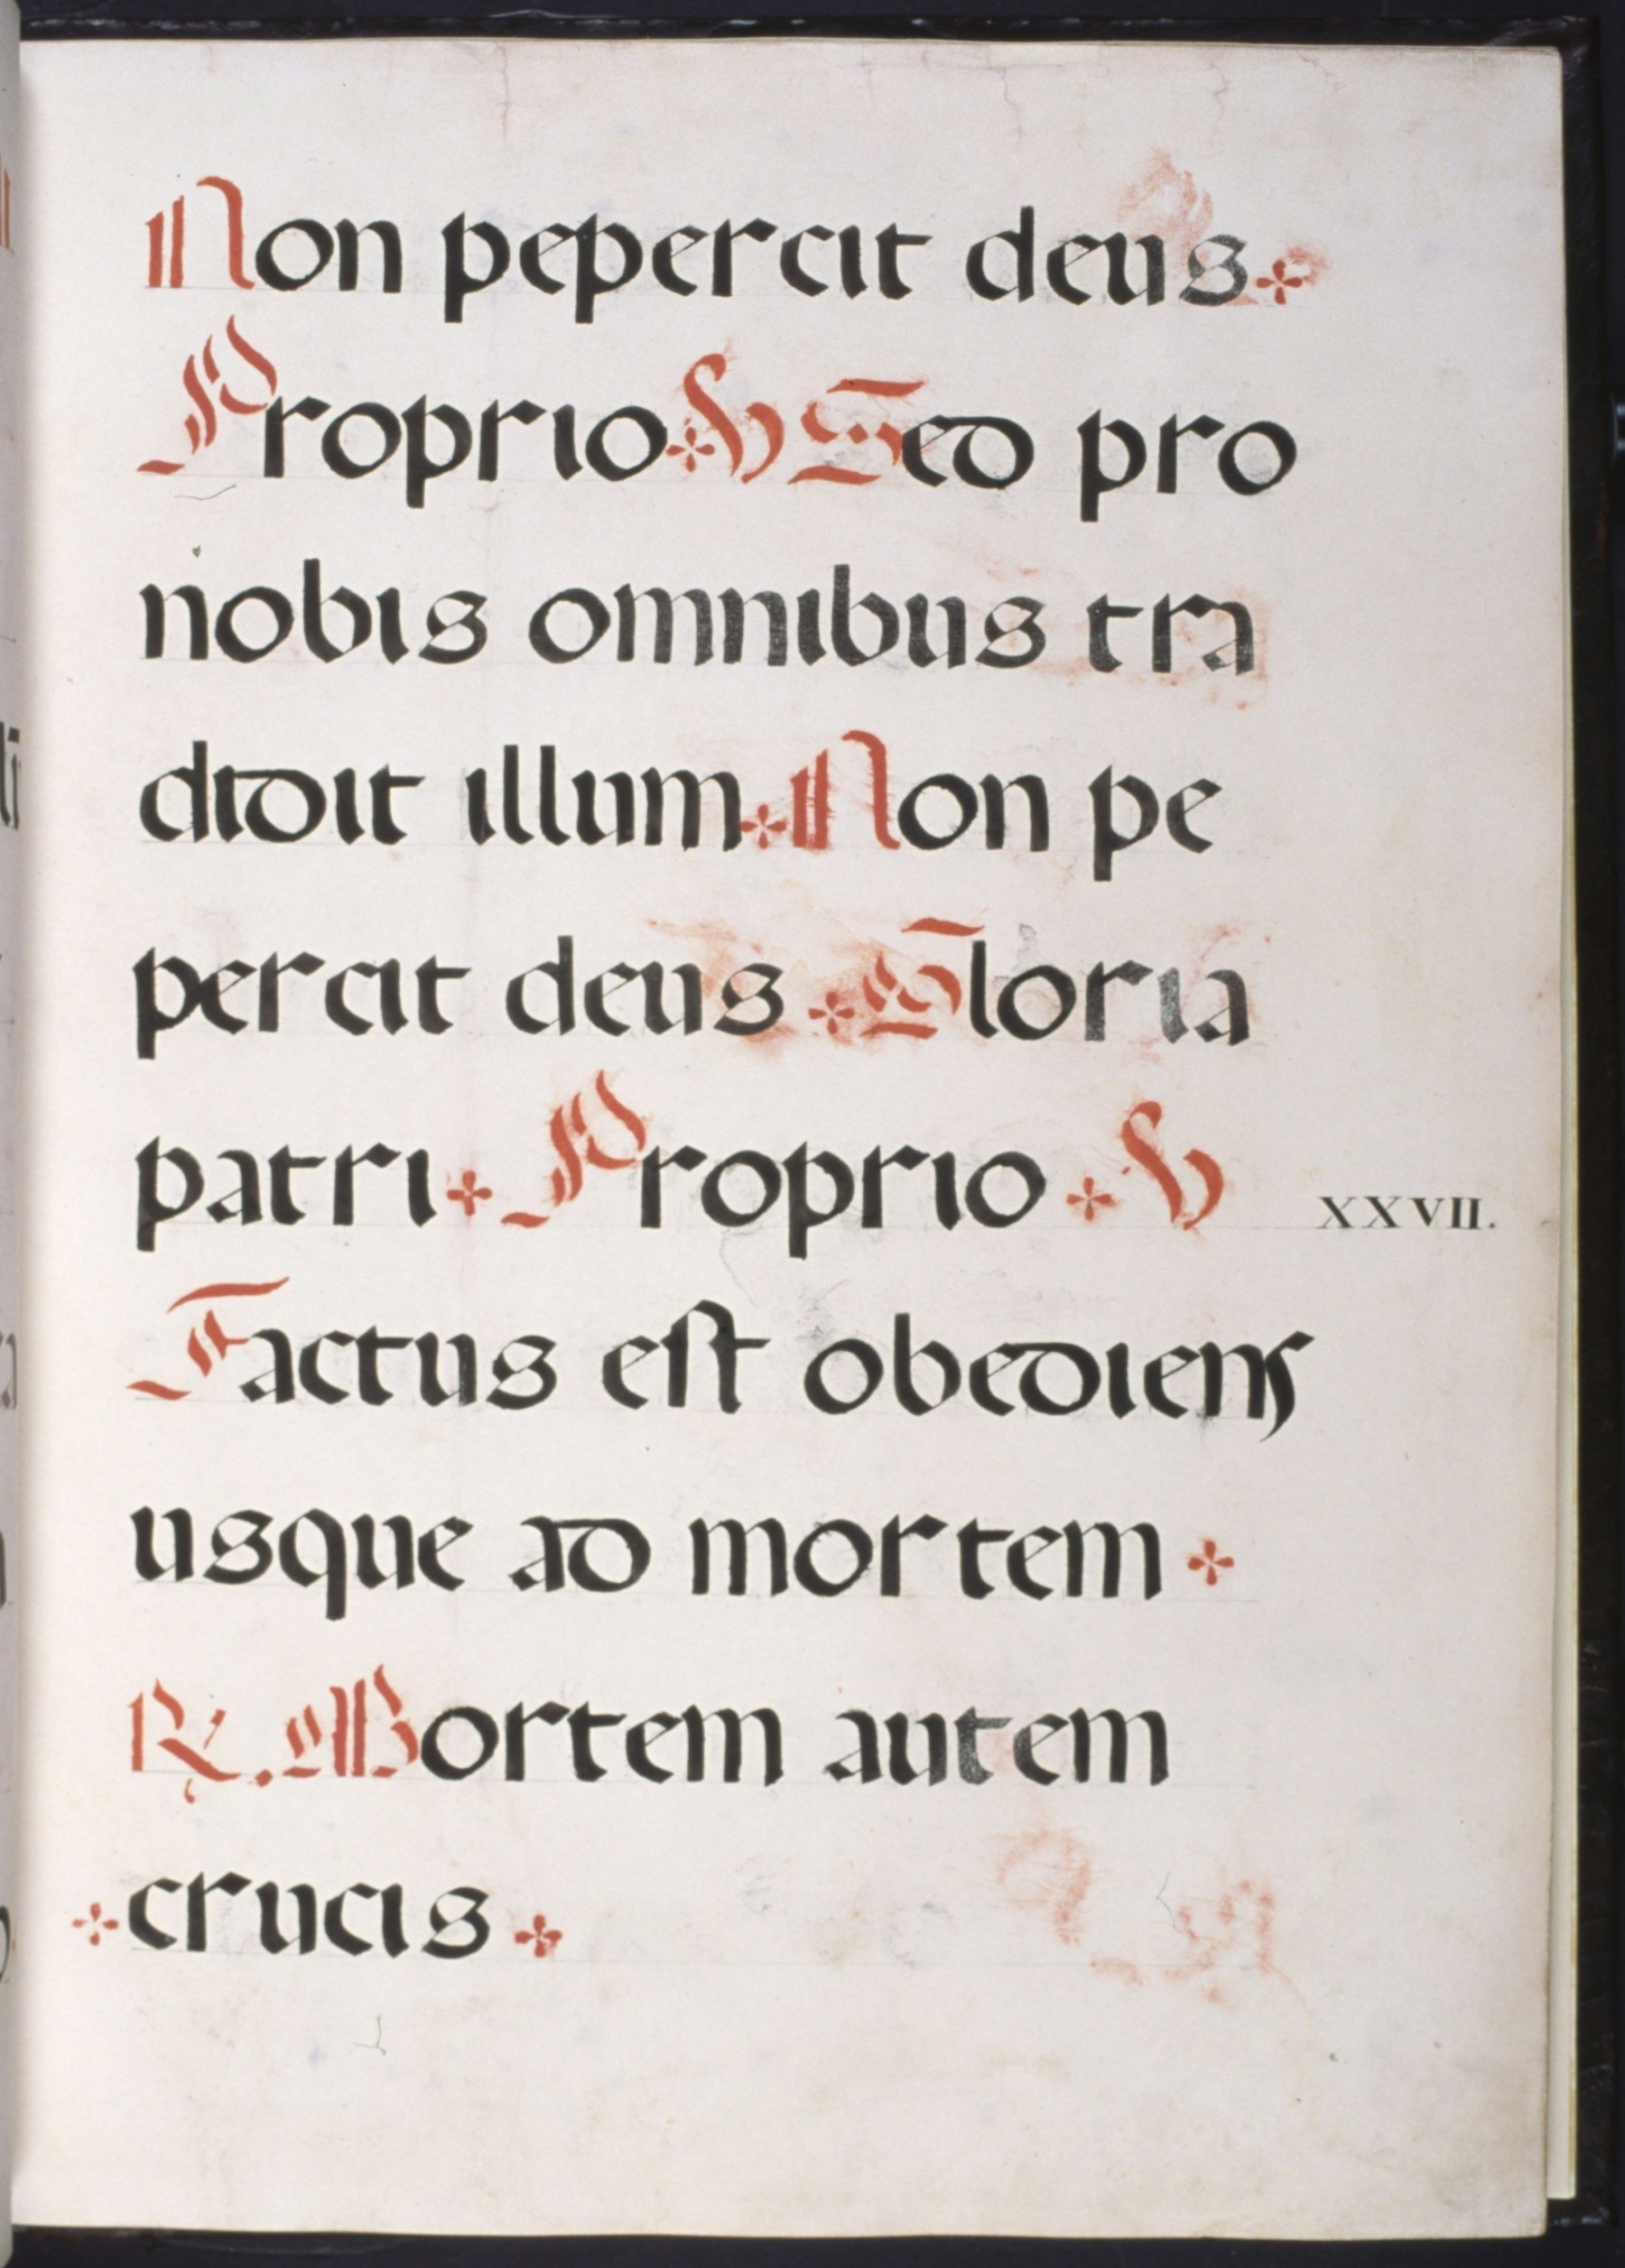 Non pepercit deus
Proprio ℣ Sed pro
nobis omnibus tra
didit illum Non pe
percit deus Gloria
patri Proprio ℣
XXVII.
Factus eſt obediens
usque ad mortem
℟. Mortem autem
crucis